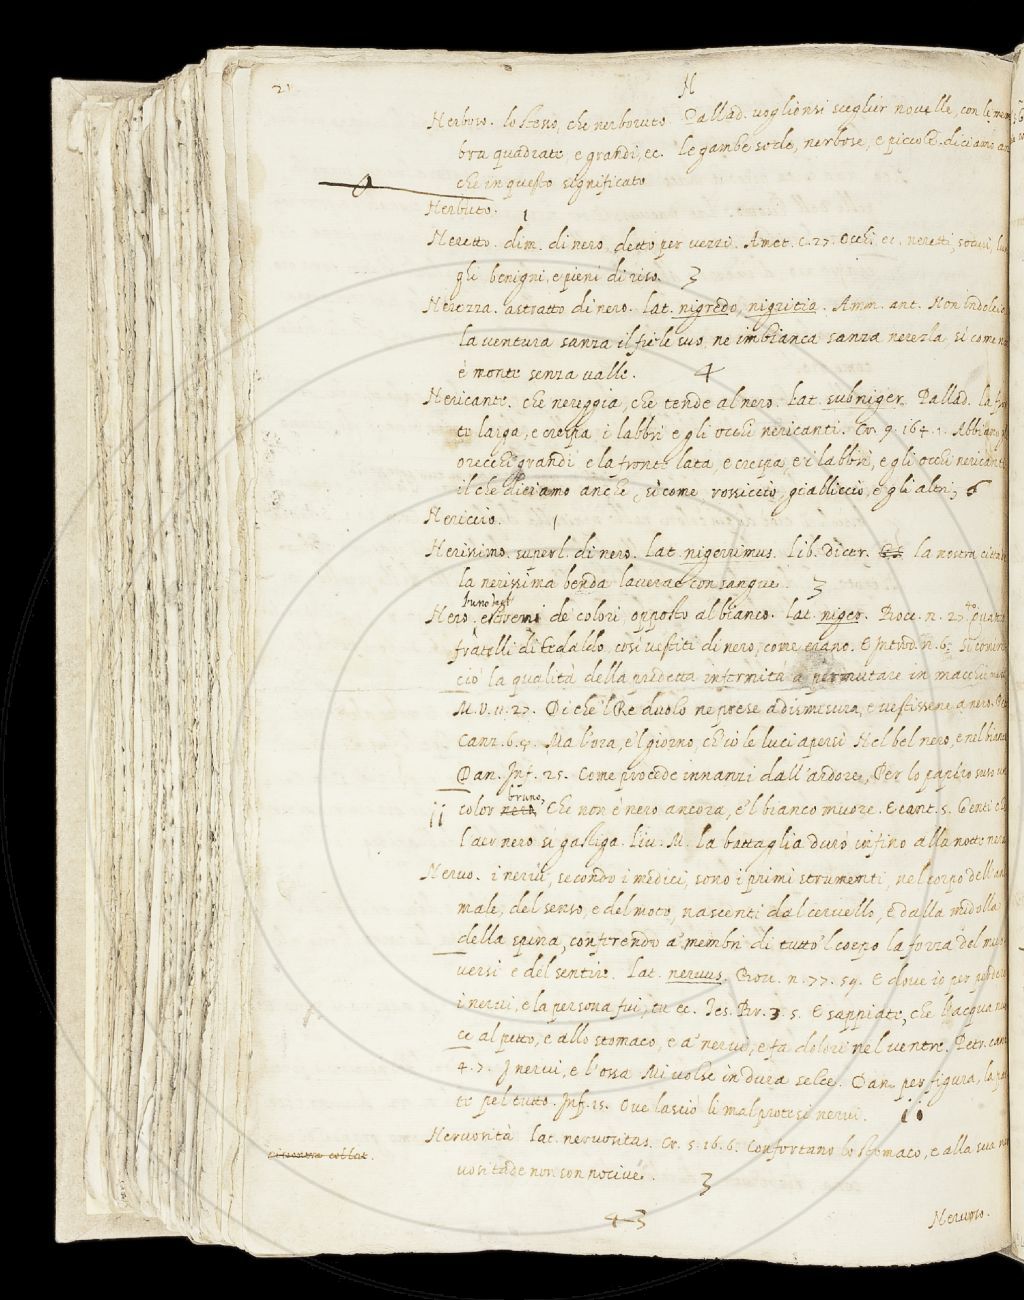 21
N
Nerboso. lo stesso, che nerboruto. Pallad. voglionsi sceglier novelle, con le mem
bra quadrate, e grandi, ec. le gambe sode, nerbose, e piccole. diciamo an
che in questo significato
Nerbuto.
1
Neretto. dim. di nero, detto per vezzi. Amet. c. 27. Occhi ec. neretti, soavi, lun
ghi benigni, e pieni di riso. 3
Nerezza. astratto di nero. Lat. nigredo, nigritia. Amm. ant. Non indolcia
la ventura sanza il fiele suo, ne imbianca sanza nerezza si come no
è monte senza valle. 4
Nericante. che nereggia, che tende al nero. Lat. subniger. Pallad. la fron
te larga, e crespa i labbri e gli occhi nericanti. Cr. 9. 164. 1. Abbiano
orecchi grandi e la fronte lata, e crespa, e i labbri, e gli occhi nericanti
il che diciamo anche, sì come, rossiccio, gialliccio, e gli altri, 6
Nericcio.
1
Nerissimo. superl. di nero. Lat. nigerrimus. Lib. dicer. la nostra città
la nerissima benda lavera con sangue. 3
uno degl'
Nero. estremi de' colori, opposto al bianco. Lat. niger. Bocc. n. 27. 40. quattro
fratelli di Tedaldo, così vestiti di nero, come erano. E Introd. n. 6. Si comin
ciò la qualità della predetta infermità a permutare in macchie nere
M. V. 11. 27. Di che 'l Re duolo ne prese a dismisura, e vestissene a nero. Petr.
Canz. 6. 4. Ma l'ora, e 'l giorno, ch'io le luci apersi Nel bel nero, e nel bianco
Dan. Inf. 25. Come procede innanzi dall'ardore, Per lo papiro suso un
bruno,
11 color nero, Che non è nero ancora, e 'l bianco muore. E cant. 5. Genti che
l'aer nero sì gastiga. Liv. M. la battaglia durò infino alla notte nera
Nervo. i nervi, secondo i medici, sono i primi strumenti, nel corpo dell'ani
male, del senso, e del moto, nascenti dal cervello, e dalla midolla
della spina, conferendo a' membri di tutto 'l corpo la forza del muo
versi e del sentire. Lat. nervus. Bocc. n. 77. 59. E dove io per perdere
i nervi, e la persona fui, tu ec. Tes. Pov. 3. 5. E sappiate, che l'acqua nuo
ce al petto, e allo stomaco, e a' nervi, e fa dolore nel ventre. Petr. canz.
4. 7. I nervi, e l'ossa Mi volse in dura selce. Dan. per figura, la par
te pel tutto. Inf. 15. Ove lasciò li mal protesi nervi. 11
Nervosità lat. nervositas. Cr. 5. 16. 6. Confortano lo stomaco, e alla sua ner
vositade non son nocive. 3
43
Nervoso.